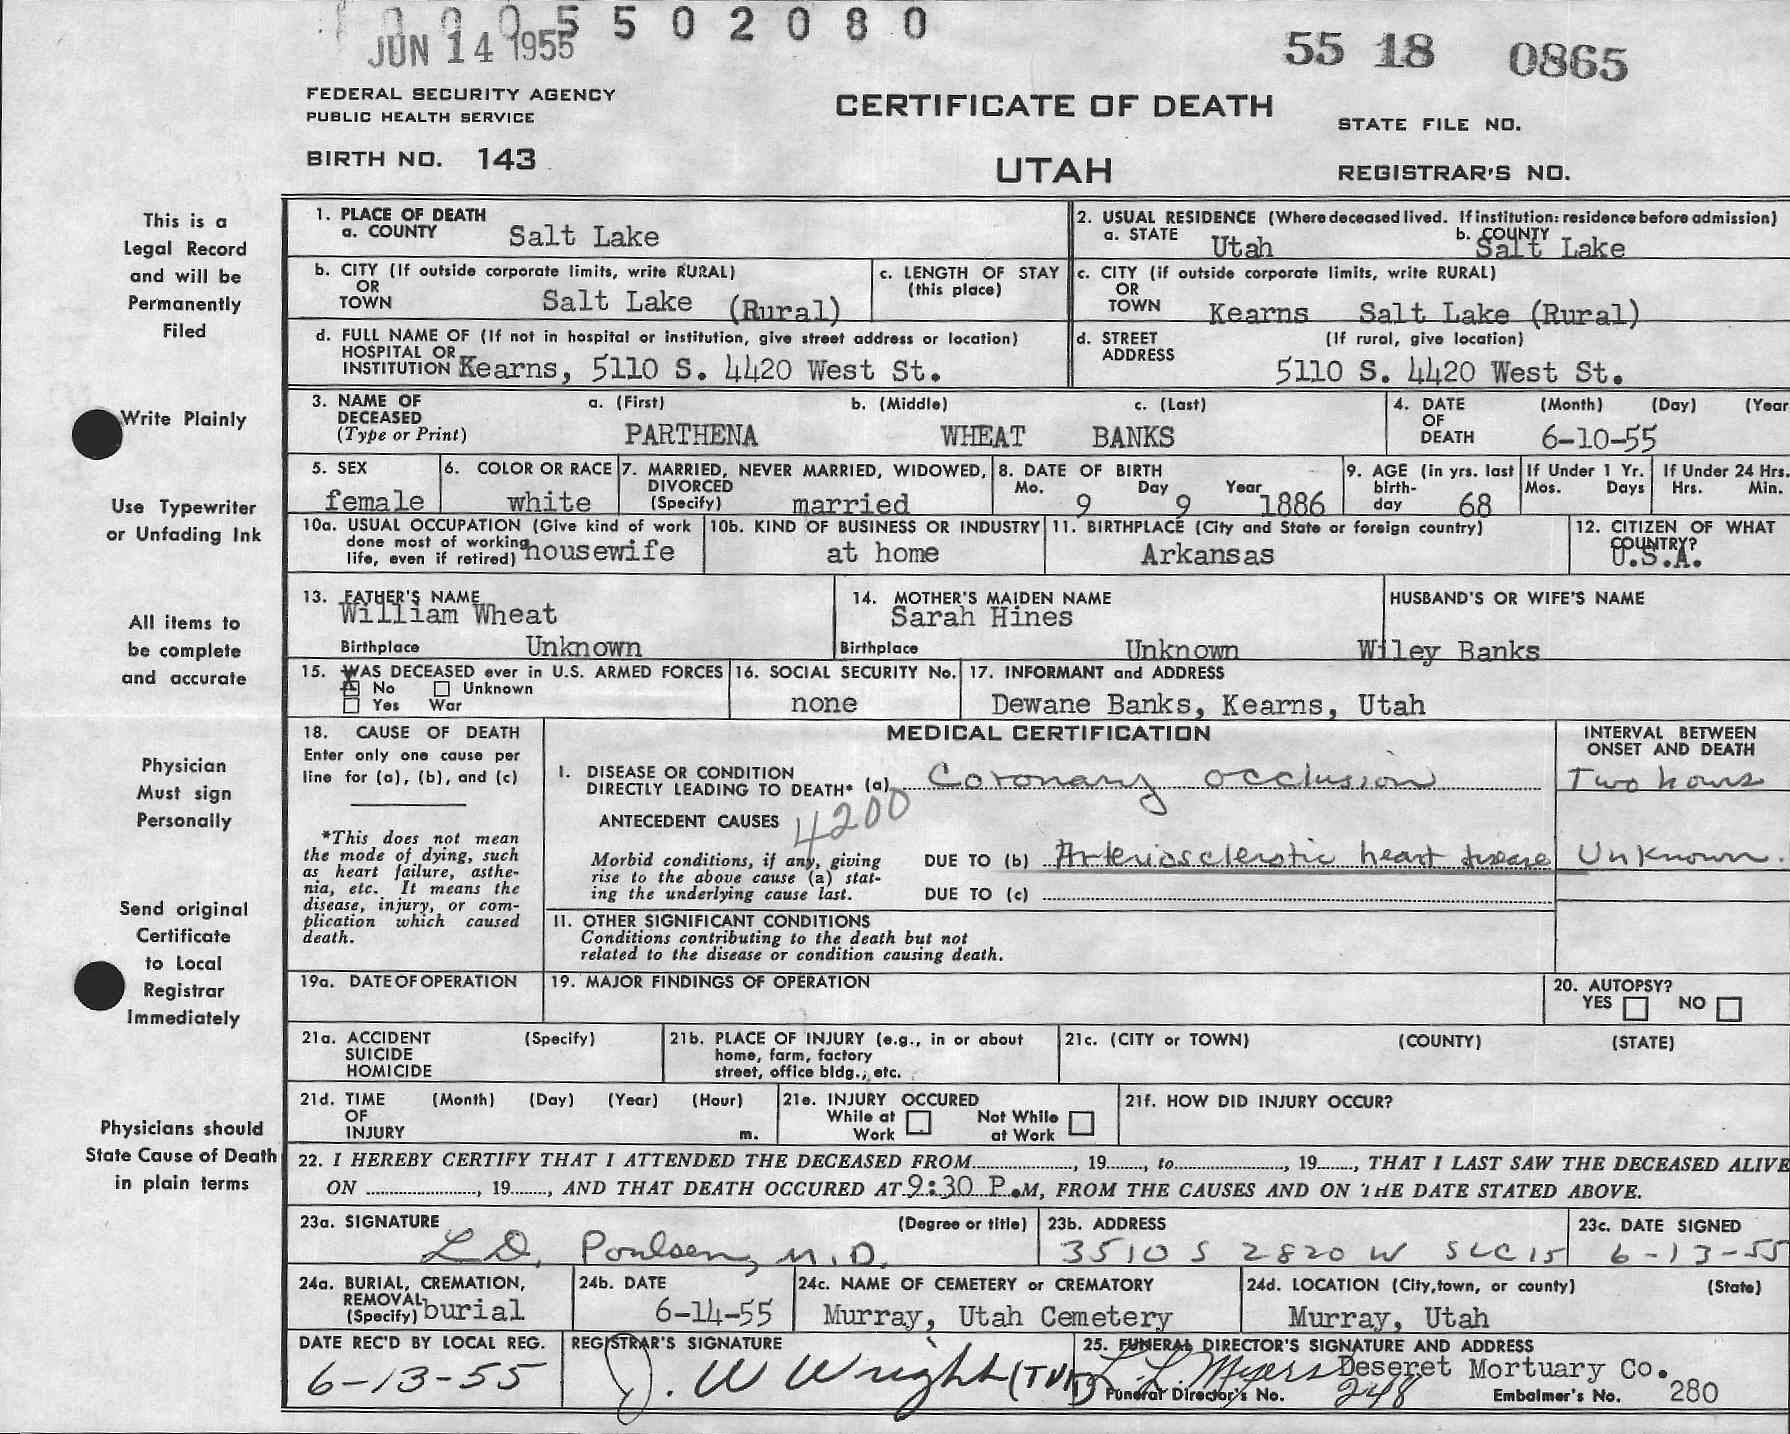 0 0 0 5 5 0 2 0 8 0
JUN 14 1955
55 18 0865
FEDERAL SECURITY AGENCY
PUBLIC HEALTH SERVICE
CERTIFICATE OF DEATH
STATE FILE NO.
BIRTH NO. 143
UTAH
REGISTRAR'S NO.
This is a
Legal Record
and will be
Permanently
Filed
Write Plainly
Use Typewriter
or Unfading Ink
All items to
be complete
and accurate
Physician
Must sign
Personally
Send original
Certificate
to Local
Registrar
Immediately
Physicians should
State Cause of Death
in plain terms
1. PLACE OF DEATH
a. COUNTY Salt Lake
2. USUAL RESIDENCE (Where deceased lived. If institution: residence before admission)
a. STATE Utah b. COUNTY Salt Lake
b. CITY (If outside corporate limits, write RURAL)
OR
TOWN Salt Lake (Rural)
c. LENGTH OF STAY
(this place)
c. CITY (if outside corporate limits, write RURAL)
OR
TOWN Kearns Salt Lake (Rural)
d. FULL NAME OF (If not in hospital or institution, give street address or location)
HOSPITAL OR
INSTITUTION Kearns, 5110 S. 4420 West St.
d. STREET (If rural, give location)
ADDRESS
5110 S. 4420 West St.
3. NAME OF a. (First) b. (Middle) c. (Last)
DECEASED
(Type or Print) PARTHENA WHEAT BANKS
4. DATE (Month) (Day) (Year
OF
DEATH 6-10-55
5. SEX
female
6. COLOR OR RACE
white
7. MARRIED, NEVER MARRIED, WIDOWED,
DIVORCED
(Specify) married
8. DATE OF BIRTH
Mo. 9 Day 9 Year 1886
9. AGE (in yrs. last
birth-
day 68
If Under 1 Yr.
Mos. Days
If Under 24 Hrs.
Hrs. Min.
10a. USUAL OCCUPATION (Give kind of work
done most of working
life, even if retired) housewife
10b. KIND OF BUSINESS OR INDUSTRY
at home
11. BIRTHPLACE (City and State or foreign country)
Arkansas
12. CITIZEN OF WHAT
COUNTRY?
U.S.A.
13. FATHER'S NAME
William Wheat
Birthplace Unknown
14. MOTHER'S MAIDEN NAME
Sarah Hines
Birthplace Unknown
HUSBAND'S OR WIFE'S NAME
Wiley Banks
15. WAS DECEASED ever in U.S. ARMED FORCES
X No Unknown
Yes War
16. SOCIAL SECURITY No.
none
17. INFORMANT and ADDRESS
Dewane Banks, Kearns, Utah
18. CAUSE OF DEATH
Enter only one cause per
line for (a), (b), and (c)
*This does not mean
the mode of dying, such
as heart failure, asthe-
nia, etc. It means the
disease, injury, or com-
plication which caused
death.
MEDICAL CERTIFICATION
INTERVAL BETWEEN
ONSET AND DEATH
I. DISEASE OR CONDITION
DIRECTLY LEADING TO DEATH* (a) Coronary occlusion Two hours
ANTECEDENT CAUSES 4200
Morbid conditions, if any, giving
rise to the above cause (a) stat-
ing the underlying cause last.
DUE TO (b) Arteriosclerotic heart disease Unknown.
DUE TO (c)
II. OTHER SIGNIFICANT CONDITIONS
Conditions contributing to the death but not
related to the disease or condition causing death.
19a. DATE OF OPERATION
19. MAJOR FINDINGS OF OPERATION
20. AUTOPSY?
YES NO
21a. ACCIDENT (Specify)
SUICIDE
HOMICIDE
21b. PLACE OF INJURY (e.g., in or about
home, farm, factory
street, office bldg., etc.
21c. (CITY or TOWN) (COUNTY) (STATE)
21d. TIME (Month) (Day) (Year) (Hour)
OF
INJURY m.
21e. INJURY OCCURED
While at Not While
Work at Work
21f. HOW DID INJURY OCCUR?
22. I HEREBY CERTIFY THAT I ATTENDED THE DECEASED FROM, 19, to, 19, THAT I LAST SAW THE DECEASED ALIVE
ON, 19, AND THAT DEATH OCCURED AT 9:30 P.M, FROM THE CAUSES AND ON THE DATE STATED ABOVE.
23a. SIGNATURE (Degree or title)
L D. Poulsen, M.D.
23b. ADDRESS
3510 S 2820 W SLC 15
23c. DATE SIGNED
6-13-55
24a. BURIAL, CREMATION,
REMOVAL
(Specify) burial
24b. DATE
6-14-55
24c. NAME OF CEMETERY or CREMATORY
Murray, Utah Cemetery
24d. LOCATION (City, town, or county) (State)
Murray, Utah
DATE REC'D BY LOCAL REG.
6-13-55
REGISTRAR'S SIGNATURE
J. W Wright
25. FUNERAL DIRECTOR'S SIGNATURE AND ADDRESS
L. L. Myers Deseret Mortuary Co.
Funeral Director's No. 248 Embalmer's No. 280